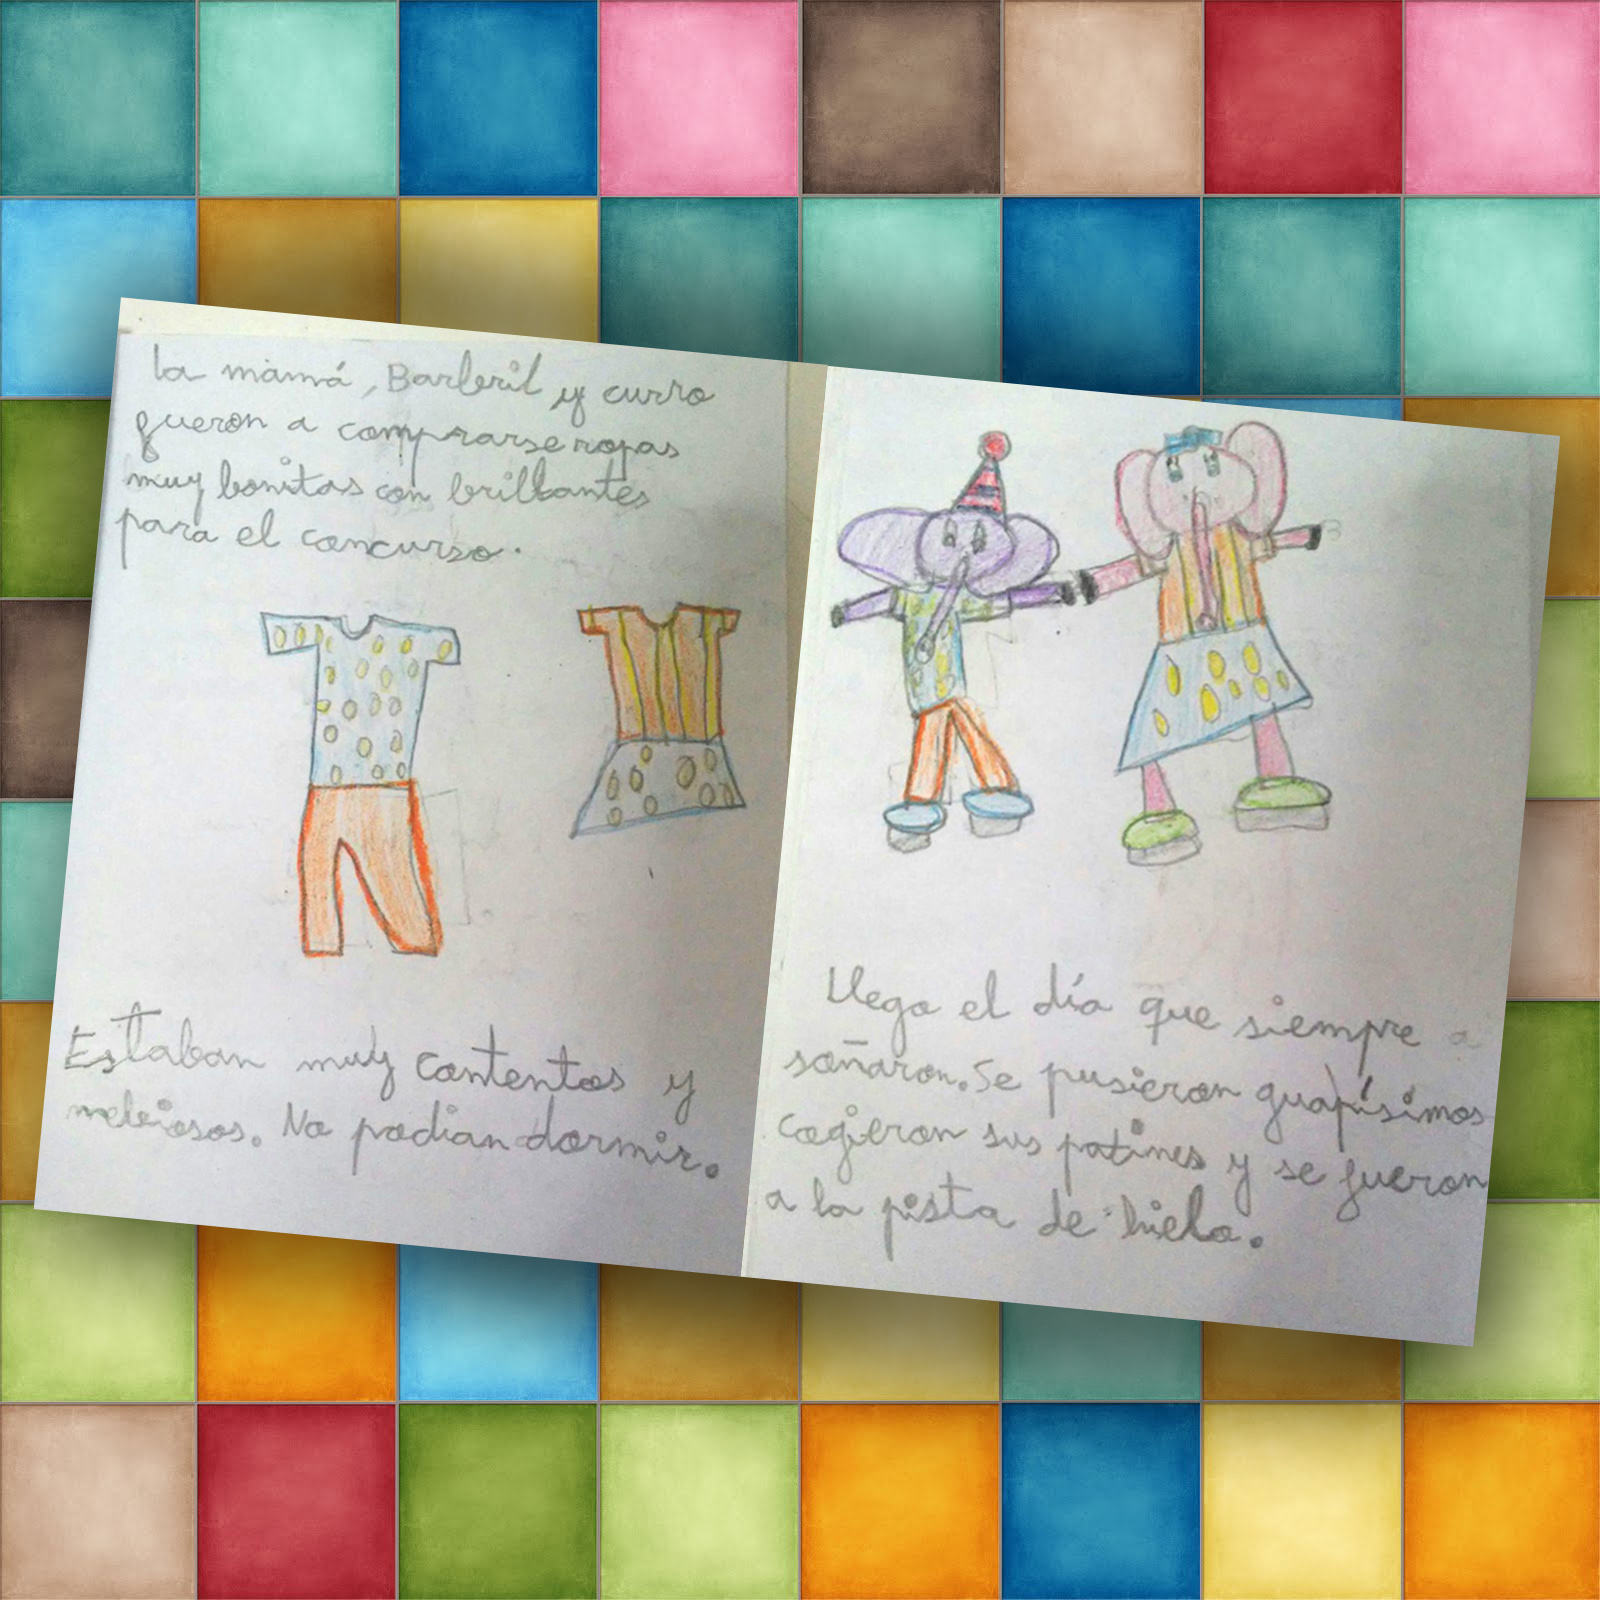 La mamá, Barberil y curro
fueron a comprarse ropas
muy bonitas con brillantes
para el concurso.
Estaban muy contentos y
nerviosos. No podian dormir.
Llego el día que siempre
soñaron. Se pusieron guapísimos
cogieron sus patines y se fueron
a la pista de hielo.